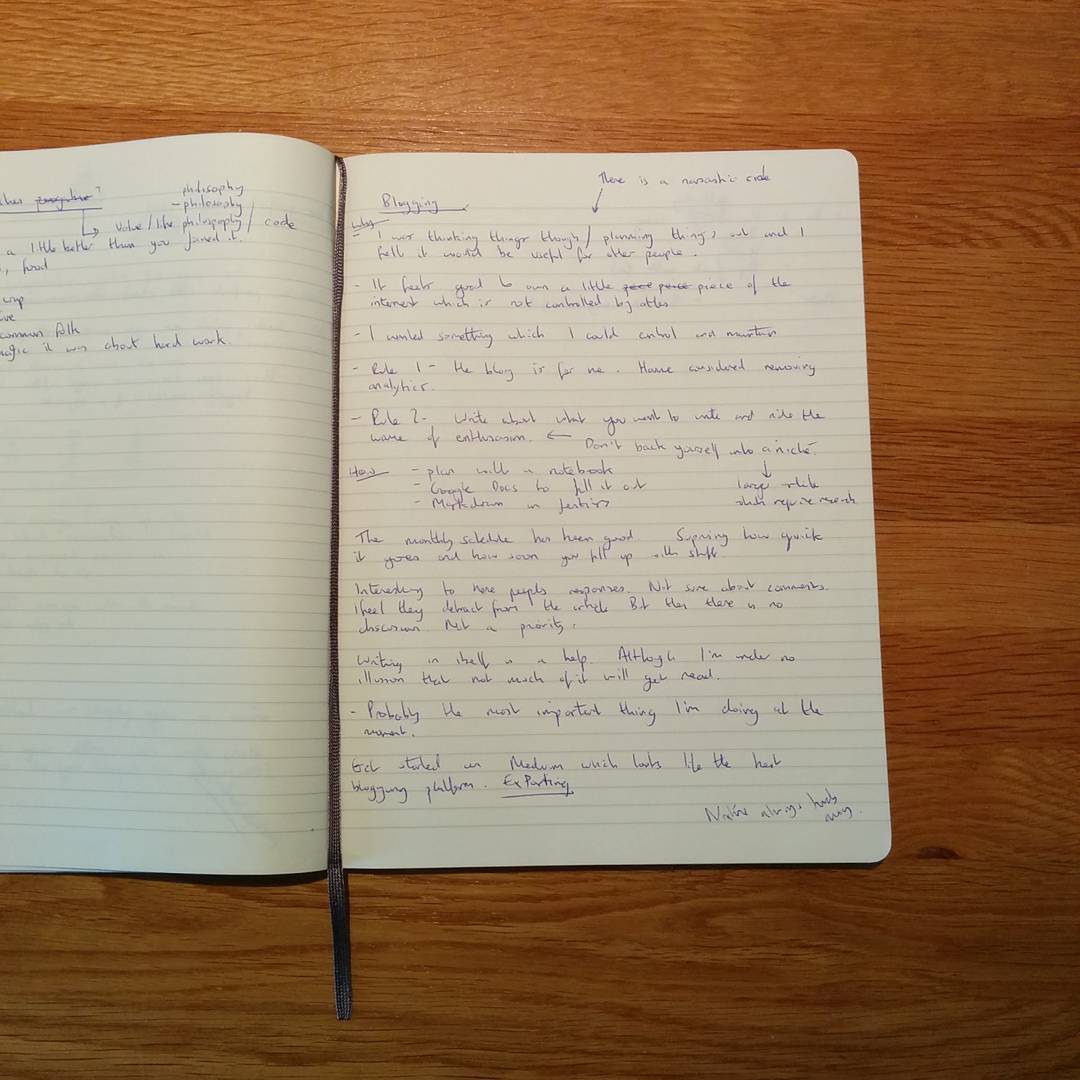 philosophy
- philosophy
Value / life philosophy / code
a little better than you joined it.
, food
common folk
it was about hard work.
There is a narsastic code
Blogging
Why
- I was thinking things though / planning things out and I
felt it would be useful for other people.
- It feels good to own a little piece of the
internet which is not controlled by others
- I wanted something which I could control and maintain
- Rule 1 - the blog is for me. Have considered removing
analytics.
- Rule 2 - Write about what you want to write and ride the
wave of enthusiasm. ← Don't back yourself into a niche.
How - plan with a notebook
- Google Docs to fill it out
- Markdown in
large
require research
The monthly schedule has been good. how quick
it goes and how soon you fill up with stuff.
Interesting to have peoples responses. Not sure about comments.
I feel they detract from the article But then there is no
discussion. Not a priority.
Writing in itself is a help. Although I'm under no
illusion that not much of it will get read.
- Probably the most important thing I'm doing at the
moment.
Get started on Medium which looks like the best
blogging platform.
always